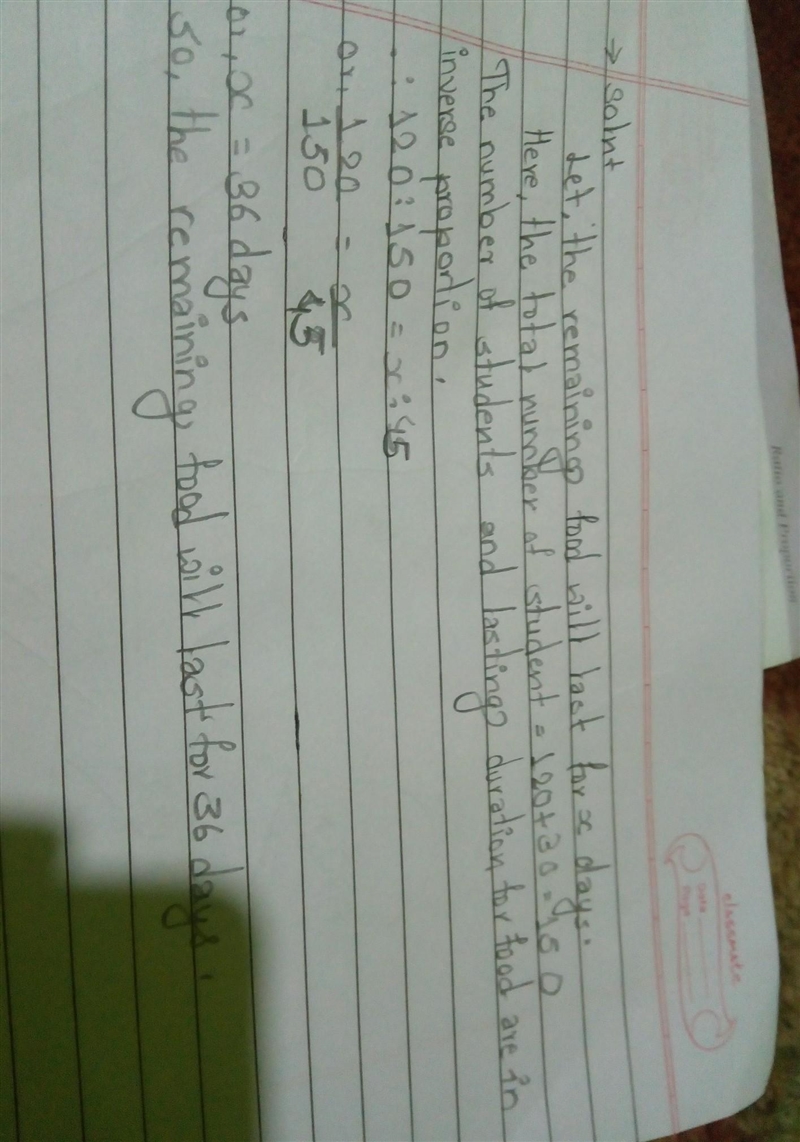 Ratio and Proportion
classmate
Date
Page
→ solnt
Let, the remaining food will last for x days.
Here, the total number of student = 120+30=150
The number of students and lasting duration for food are in
inverse proportion.
∴ 120:150 = x:45
or, 120/150 = x/45
or, x = 36 days
So, the remaining food will last for 36 days.